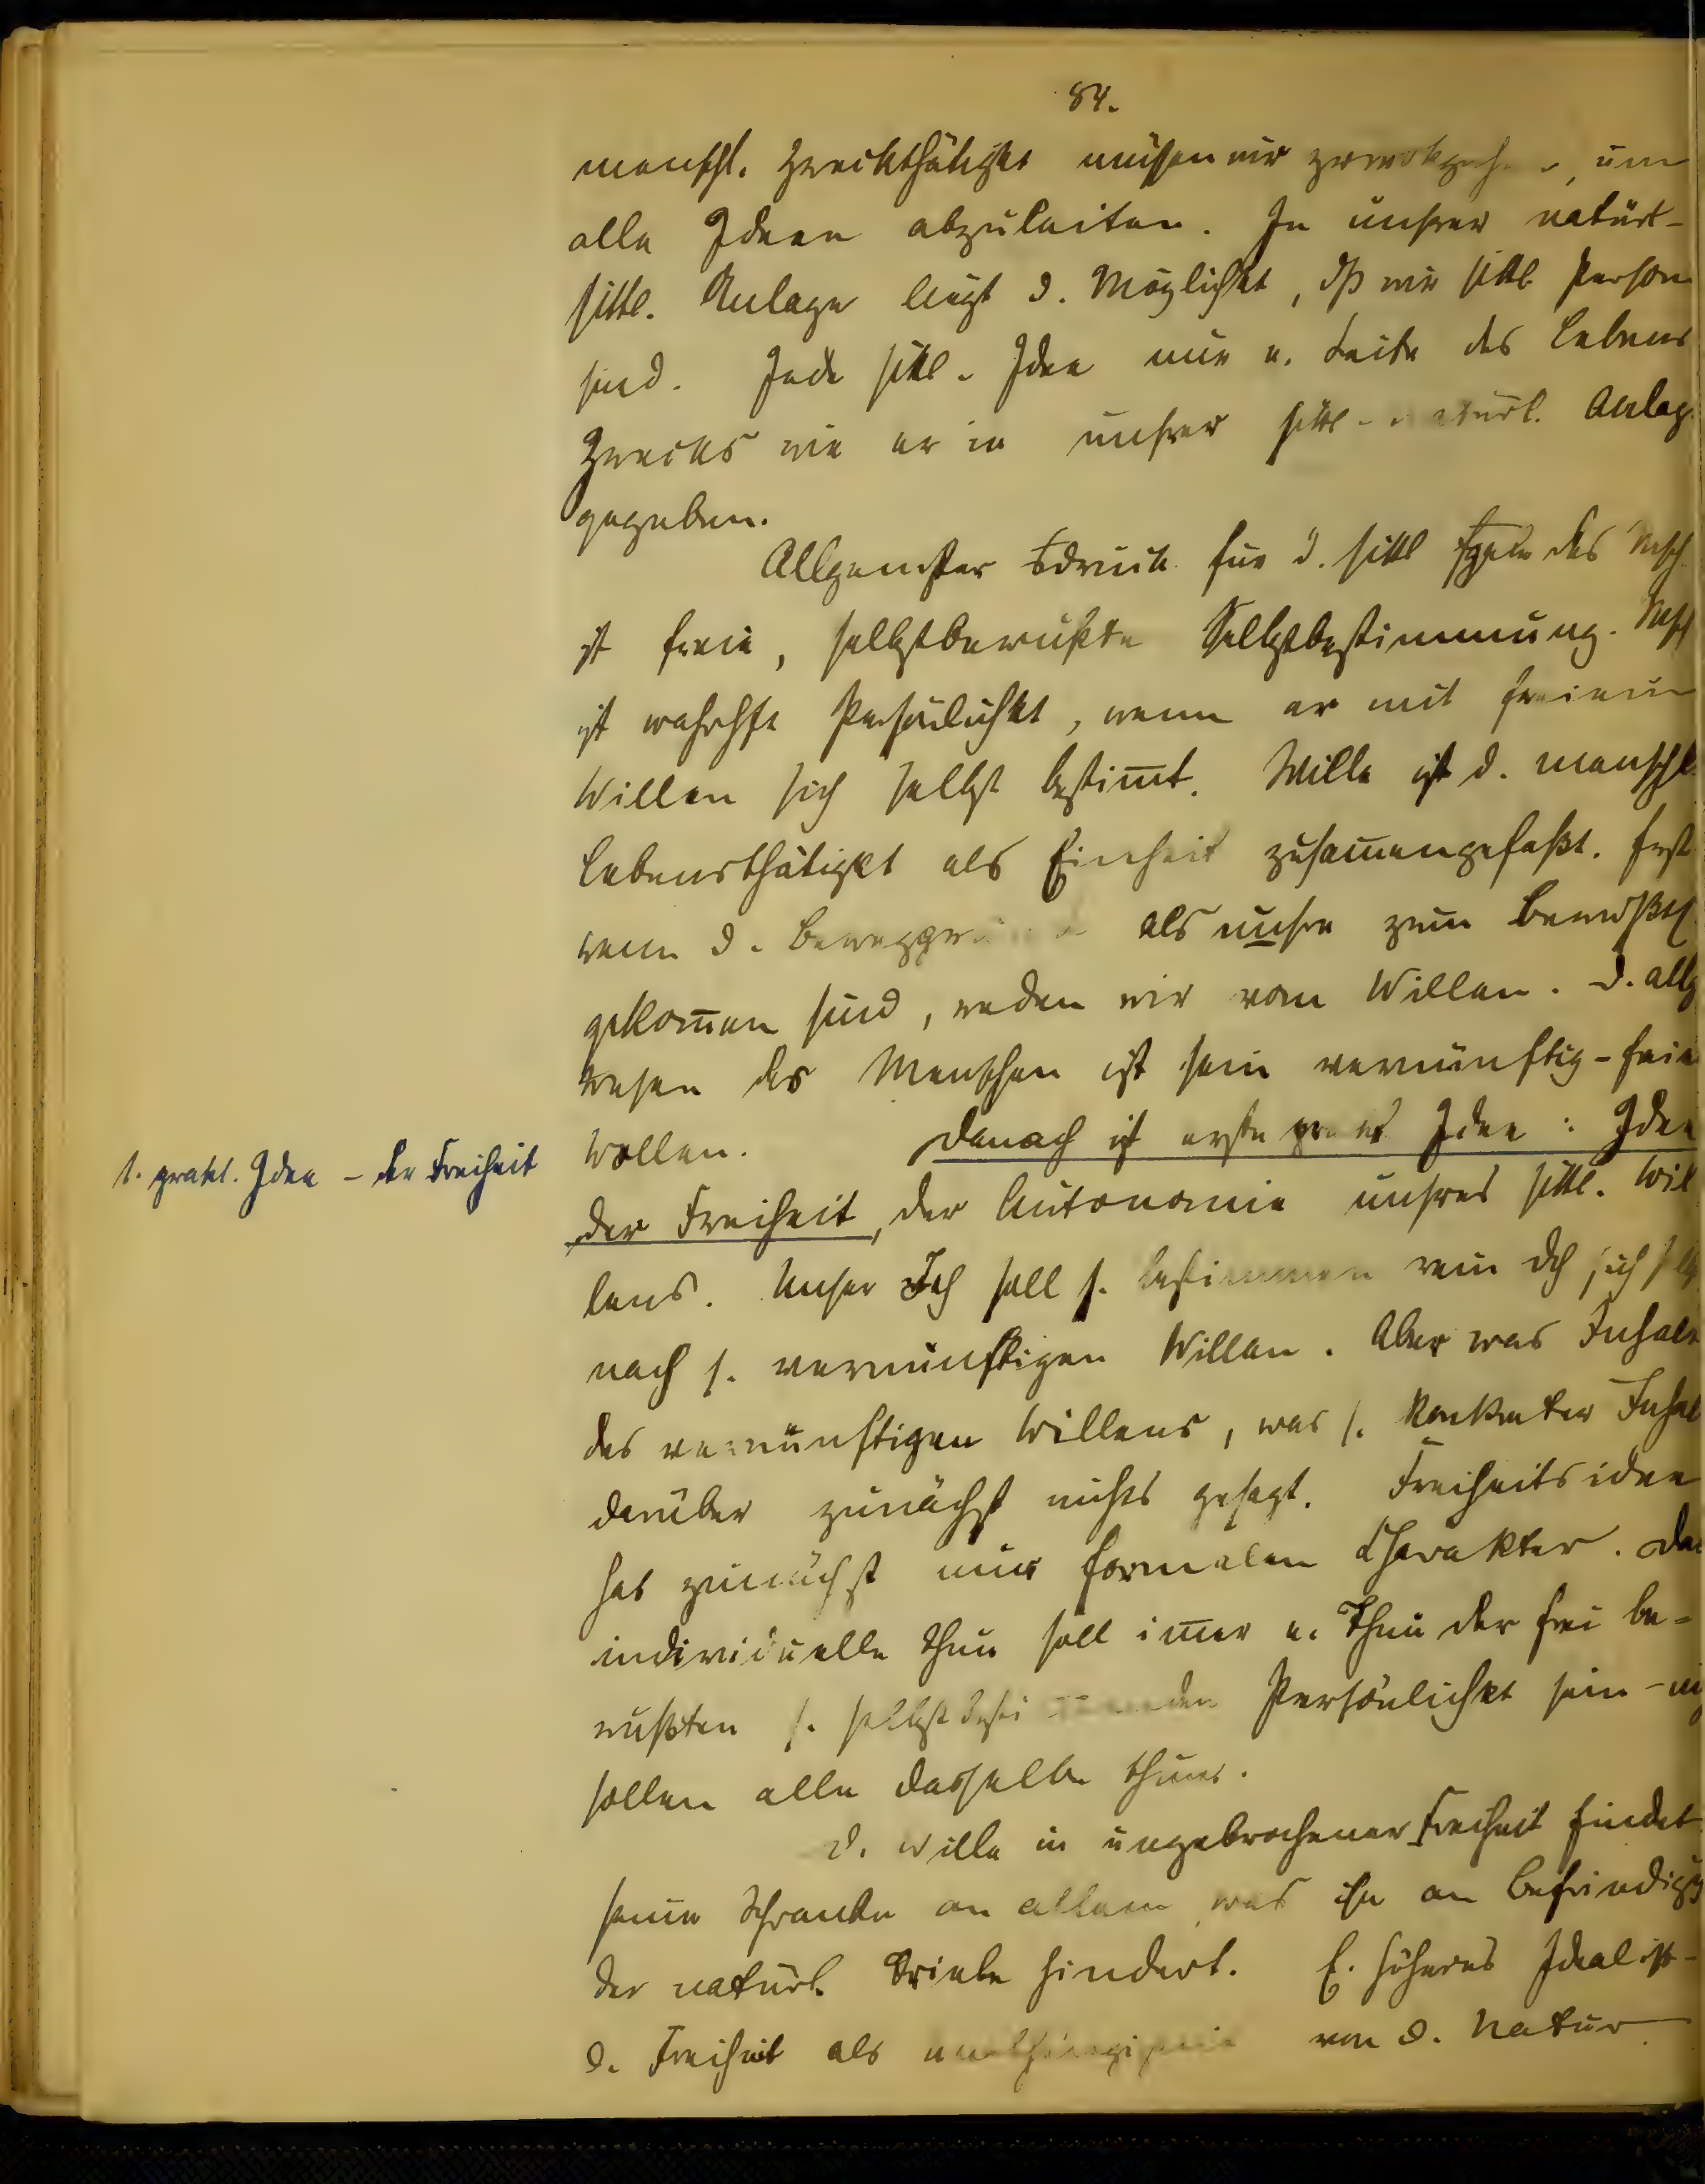 84.
menschl. Zweckthätigkt müssen wir, um
alle Ideen abzuleiten. In unsrer natürl-
sittl. Anlage liegt d. Möglichkt, dß wir sittl. Person
sind. Jede sittl. Idee nur e. Seite des Lebens
Zwecks wie er in unsrer sittl-natürl. Anlag
gegeben.
Allgemster für d. sittl des Msch
ist freie, selbstbewußte Selbstbestimmung. Msch
ist wahrhfte Persönlichkt, wenn er mit freiem
Willen sich selbst bestim̅t. Wille ist d. menschl.
Lebensthätigkt als Einheit zusam̅engefaßt. Erst
wenn d. als unsre zum Bewußts
gekom̅en sind, reden wir vom Willen. D. allg
Wesen des Menschen ist sein vernünftig-freie
1. prakt. Idee – der Freiheit
Wollen. Danach ist erste Idee: Idee
der Freiheit, der Autonomie unsres sittl. Wil
lens. Unser Ich soll s. bestimmen rein dch sich
nach s. vernünftigen Willen. Aber was Inhalt
des vernünftigen Willens, was s. konkreter Inhal
darüber zunächst nichts gesagt. Freiheitsidee
hat zunächst nur formalen Charakter. Das
individuelle Thun soll im̅er e. Thun der frei be-
wußten s. selbst Persönlichkt sein –
sollen alle dasselbe thun.
D. Wille in ungebrochener Freiheit findet
seine Schranke an allem was ihn an Befriedigg
der natürl. Triebe hindert. E. höheres Ideal ist
d. Freiheit als von d. Natur